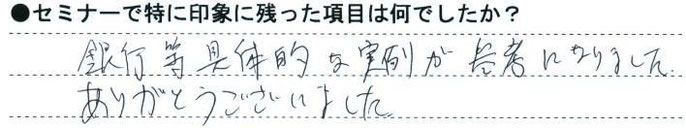 ●セミナーで特に印象に残った項目は何でしたか？
銀行等具体的な実例が参考になりました。
ありがとうございました。